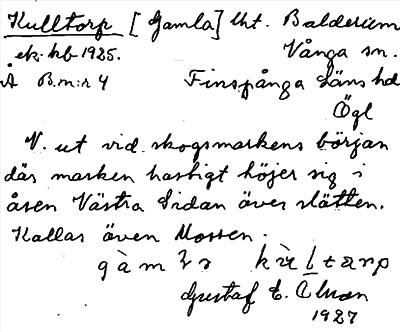 Kulltorp [Gamla] lht. Baldersum
ek. kb 1925. Vånga sn.
Å B.m:r 4 Finspånga Läns hd
Ögl
N. ut vid skogsmarkens början
där marken hastigt höjer sig i
åsen Västra Sidan över slätten.
Kallas även Mossen.
Gustaf E.
1927